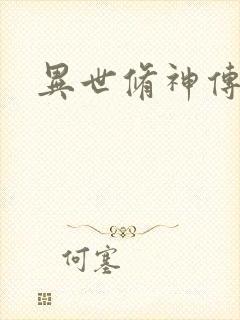 異世脩神傳
何塞